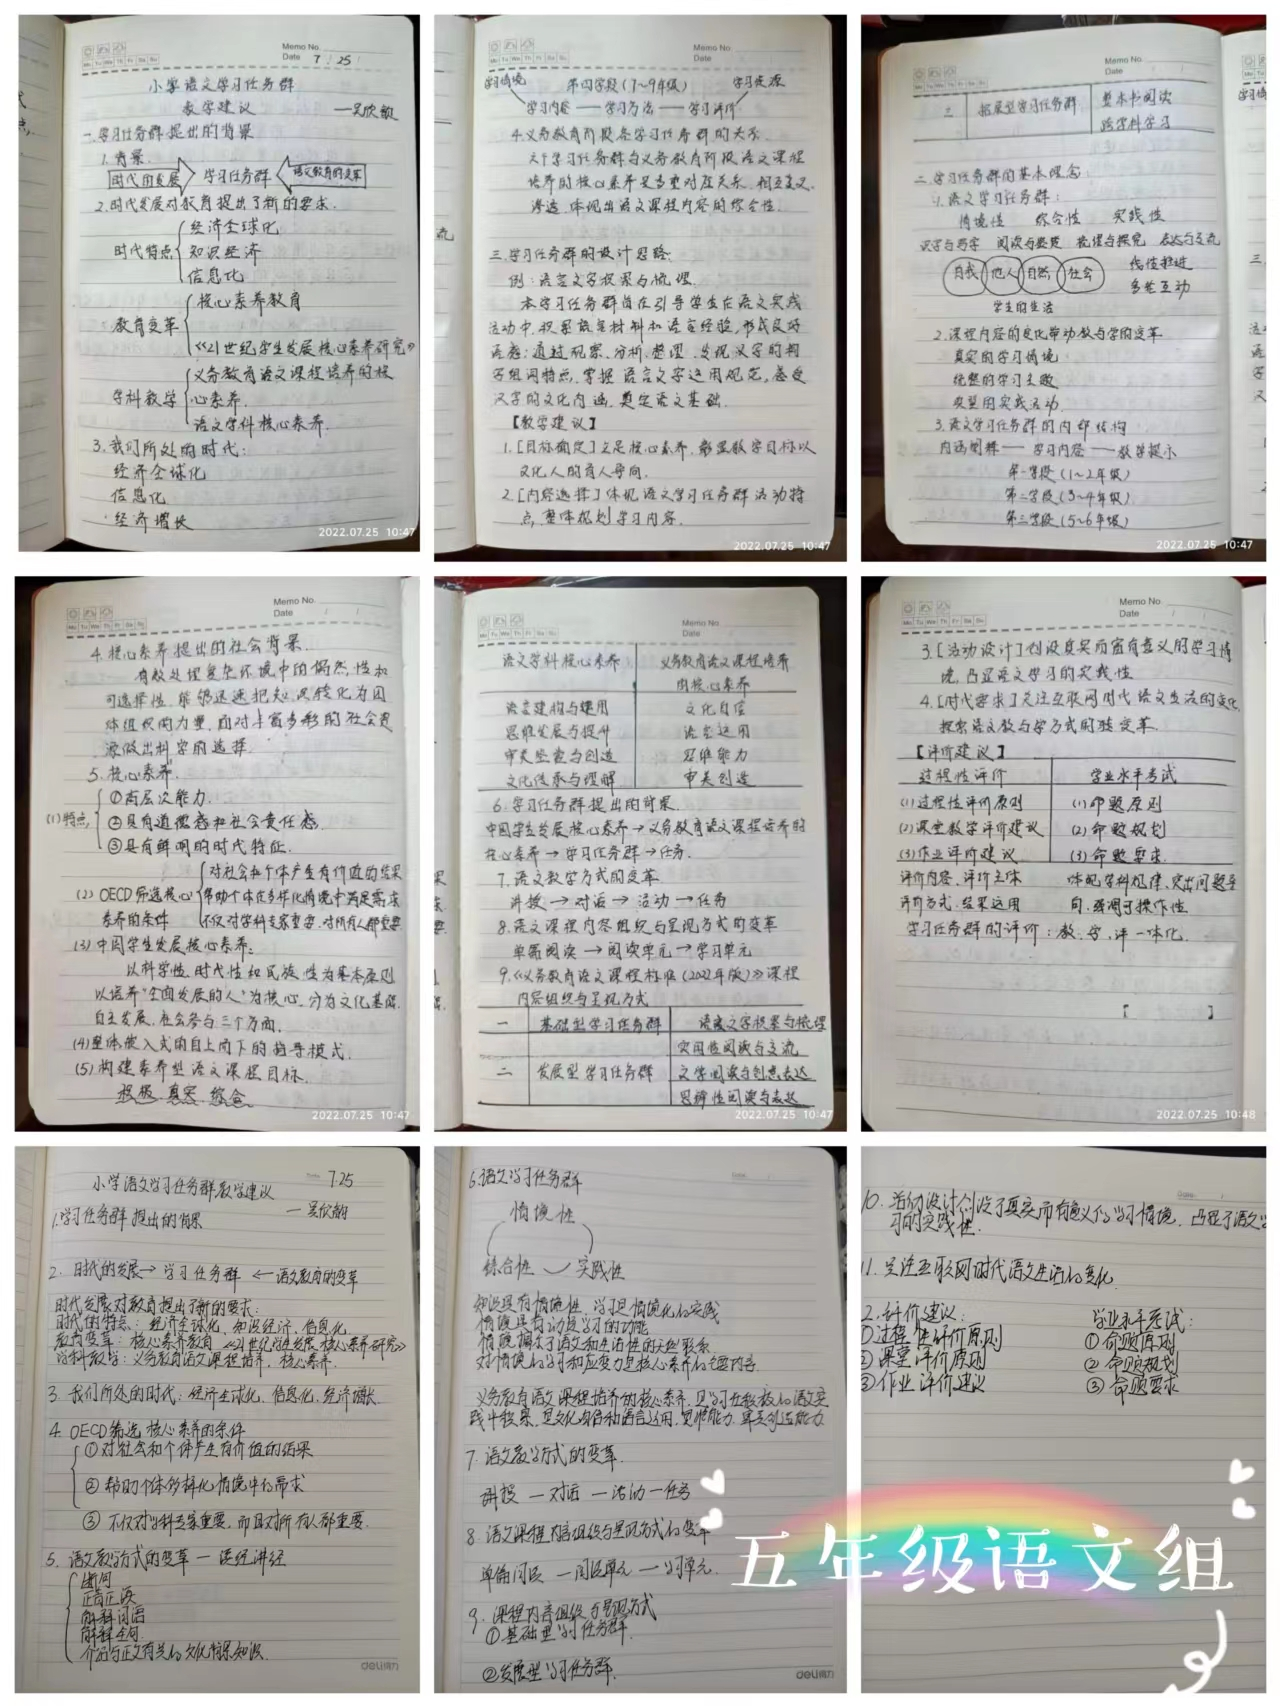 Memo No.
Date 7 / 25 /
Mo Tu We Th Fr Sa Su
小学语文学习任务群
教学建议 —吴欣歆
一.学习任务群提出的背景
1.背景.
时代的发展 学习任务群 语文教育的变革
2.时代发展对教育提出了新的要求.
时代特点
经济全球化
知识经济
信息化
教育变革
核心素养教育
《21世纪学生发展核心素养研究》
学科教学
义务教育语文课程培养的核
心素养.
语文学科核心素养.
3.我们所处的时代:
经济全球化
信息化
经济增长
2022.07.25 10:47
Memo No.
Date
学习情境 第四学段(7~9年级) 学习资源
学习内容 — 学习方法 — 学习评价
4.义务教育阶段各学习任务群的关系.
六个学习任务群与义务教育阶段语文课程
培养的核心素养是多重对应关系.相互交叉.
渗透.体现出语文课程内容的综合性.
三.学习任务群的设计思路.
例:语言文字积累与梳理.
本学习任务群旨在引导学生在语文实践
活动中,积累语言材料和语言经验,形成良好
语感;通过观察、分析、整理,发现汉字的构
字组词特点,掌握语言文字运用规范,感受
汉字的文化内涵,奠定语文基础.
【教学建议】
1.[目标确定]立足核心素养.彰显教学目标以
文化人的育人导向.
2.[内容选择]体现语文学习任务群活动特
点,整体规划学习内容.
2022.07.25 10:47
Memo No.
Date
三 拓展型学习任务群 整本书阅读
跨学科学习
二.学习任务群的基本理念:
1.语文学习任务群:
情境性 综合性 实践性
识字与写字 阅读与鉴赏 梳理与探究 表达与交流
自我 他人 自然 社会
线性推进
多维互动
学生的生活
2.课程内容的变化带动教与学的变革
真实的学习情境
统整的学习主题
典型的实践活动
3.语文学习任务群的内部结构
内涵阐释 — 学习内容 — 教学提示
第一学段(1~2年级)
第二学段(3~4年级)
第三学段(5~6年级)
2022.07.25 10:47
Memo No.
Date
4.核心素养提出的社会背景.
有效处理复杂环境中的偶然性和
可选择性.能够迅速把知识转化为团
体组织的力量.面对丰富多彩的社会资
源做出科学的选择.
5.核心素养.
(1)特点
①高层次能力.
②具有道德感和社会责任感.
③具有鲜明的时代特征.
(2)OECD筛选核心
素养的条件
对社会和个体产生有价值的结果
帮助个体在多样化情境中满足需求
不仅对学科专家重要.对所有人都重要
(3)中国学生发展核心素养:
以科学性.时代性和民族性为基本原则
以培养"全面发展的人"为核心.分为文化基础.
自主发展.社会参与三个方面.
(4)整体嵌入式的自上向下的指导模式.
(5)构建素养型语文课程目标.
积极.真实.综合
2022.07.25 10:47
Memo No.
Date
语文学科核心素养 义务教育语文课程培养
的核心素养
语言建构与运用 文化自信
思维发展与提升 语言运用
审美鉴赏与创造 思维能力
文化传承与理解 审美创造
6.学习任务群提出的背景.
中国学生发展核心素养→义务教育语文课程培养的
核心素养→学习任务群→任务.
7.语文教学方式的变革
讲授→对话→活动→任务
8.语文课程内容组织与呈现方式的变革
单篇阅读→阅读单元→学习单元
9.《义务教育语文课程标准(2022年版)》课程
内容组织与呈现方式
一 基础型学习任务群 语言文字积累与梳理
实用性阅读与交流
二 发展型学习任务群 文学阅读与创意表达
思辨性阅读与表达
2022.07.25 10:47
Memo No.
Date
3.[活动设计]创设真实而富有意义的学习情
境,凸显语文学习的实践性
4.[时代要求]关注互联网时代语文生活的变化,
探索语文教与学方式的变革.
【评价建议】
过程性评价 学业水平考试
(1)过程性评价原则 (1)命题原则
(2)课堂教学评价建议 (2)命题规划
(3)作业评价建议 (3)命题要求.
评价内容、评价主体 体现学科规律,突出问题导
评价方式.结果运用 向.强调可操作性
学习任务群的评价:教.学.评一体化.
2022.07.25 10:48
7.25
小学语文学习任务群教学建议
—吴欣歆
1.学习任务群提出的背景
2.时代的发展→学习任务群←语文教育的变革
时代发展对教育提出了新的要求:
时代的特点:经济全球化、知识经济、信息化
教育变革:核心素养教育《21世纪学生发展核心素养研究》
学科教学:义务教育语文课程培养、核心素养.
3.我们所处的时代:经济全球化、信息化、经济增长.
4.OECD筛选核心素养的条件
①对社会和个体产生有价值的结果
②帮助个体多样化情境中的需求
③不仅对学科专家重要,而且对所有人都重要.
5.语文教学方式的变革—读经讲经
断句
正音正读
解释词语
解释全句
介绍与正文有关的文化背景知识.
deli得力
Date
6.语文学习任务群
情境性
综合性 实践性
知识具有情境性,学习是情境化的实践
情境具有动机学习的功能
对情境的学习和应变力是核心素养的主要内容.
7.语文教学方式的变革.
讲授—对话—活动—任务
8.语文课程内容组织与呈现方式的变革
单篇阅读—阅读单元—学习单元.
9.课程内容组织与呈现方式
①基础型学习任务群.
②发展型学习任务群.
deli得力
Date
10.活动设计创设了真实而有意义的学习情境,凸显了语文学
习的实践性.
11.关注互联网时代语文生活的变化
2.评价建议: 学业水平考试:
①过程性评价原则 ①命题原则
②课堂评价原则 ②命题规划
③作业评价建议 ③命题要求
五年级语文组